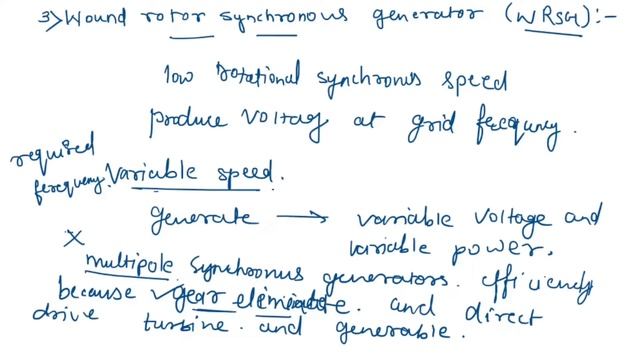 3> Wound rotor synchronous generator (WRSG):-
low rotational synchronus speed
produce voltag at grid ferequny.
required
ferequeny. Variable speed.
generate → variable voltage and
variable power.
×
multipole synchronus generators. efficiency
because gear eliminate. and direct
drive turbine and generable.